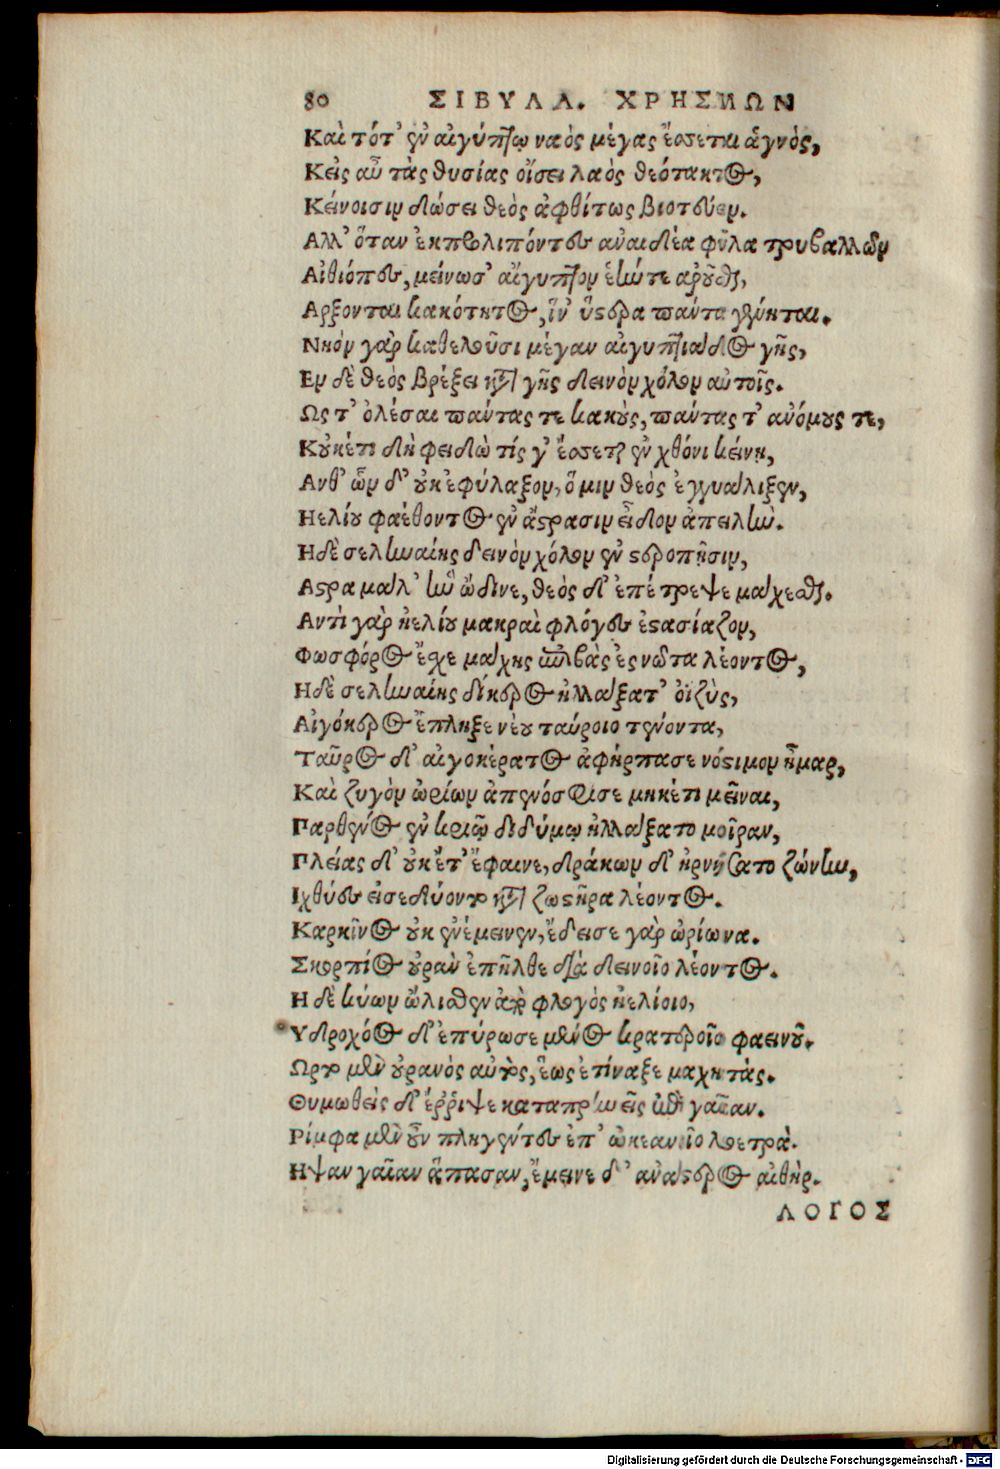 80 ΣΙΒΥΛΛ. ΧΡΗΣΜΩΝ
Καὶ τότ' ἐν αἰγύπτῳ ναὸς μέγας ἔσσεται ἁγνὸς,
Κεἰς αὖ τὰς θυσίας οἴσει λαὸς θεότακτος,
Κείνοισιν δώσει θεὸς ἀφθίτως βιοτεύειν.
Αλλ' ὅταν ἐκπρολιπόντες ἀναιδέα φῦλα τρυβαλλῶν
Αἰθίοπες, μείνωσ' αἴγυπτον ἑὴν τε ἀροῦσθαι,
Αρξονται κακότητος, ἵν' ὕστερα πάντα γένηται.
Νηὸν γὰρ καθελοῦσι μέγαν αἰγυπτιάδος γῆς,
Εν δὲ θεὸς βρέξει κατὰ γῆς δεινὸν χόλον αὐτοῖς.
Ως τ' ὀλέσαι πάντας τε κακοὺς, πάντας τ' ἀνόμους τε,
Κοὐκέτι δὴ φειδὼ τίς γ' ἔσσεται ἐν χθόνι κείνῃ,
Ανθ' ὧν δ' οὐκ ἐφύλαξον, ὅ μιν θεὸς ἐγγυάλιξεν,
Ηελίου φαέθοντος ἐν ἄστρασιν εἶδον ἀπειλὴν.
Ηδὲ σεληναίης δεινὸν χόλον ἐν στεροπῇσιν,
Αστρα μάλ' ἣν ὤδινε, θεὸς δ' ἐπέτρεψε μάχεσθαι.
Αντὶ γὰρ ἠελίου μακραὶ φλόγες ἐστασίαζον,
Φωσφόρος ἔσχε μάχης ἐπιβὰς ἐς νῶτα λέοντος,
Ηδὲ σεληναίης δίκερος ἠλλάξατ' ὀϊζὺς,
Αἰγόκερος ἔπληξε νέου ταύροιο τένοντα,
Ταῦρος δ' αἰγοκέρατος ἀφήρπασε νόστιμον ἦμαρ,
Καὶ ζυγὸν ὠρίων ἀπενόσφισε μηκέτι μεῖναι,
Παρθένος ἐν κριῷ διδύμῳ ἠλλάξατο μοῖραν,
Πλείας δ' οὐκ ἔτ' ἔφαινε, δράκων δ' ἠρνήσατο ζώνην,
Ιχθύες εἰσεδύοντο κατὰ ζωστῆρα λέοντος.
Καρκῖνος οὐκ ἐνέμεινεν, ἔδεισε γὰρ ὠρίωνα.
Σκορπίος οὐρὰν ἐπῆλθε διὰ δεινοῖο λέοντος.
Η δὲ κύων ὤλισθεν ἀπὸ φλογὸς ἠελίοιο,
Υδροχόος δ' ἐπύρωσε μένος κρατεροῖο φαεινοῦ.
Ωρτο μὲν οὐρανὸς αὐτὸς, ἕως ἐτίναξε μαχητὰς.
Θυμωθεὶς δ' ἔρριψε καταπρηνεῖς ἐπὶ γαῖαν.
Ρίμφα μὲν οὖν πληγέντες ἐπ' ὠκεανοῖο λοετρὰ.
Ηψαν γαῖαν ἅπασαν, ἔμεινε δ' ἀνάστερος αἰθὴρ.
ΛΟΓΟΣ
Digitalisierung gefördert durch die Deutsche Forschungsgemeinschaft - DFG